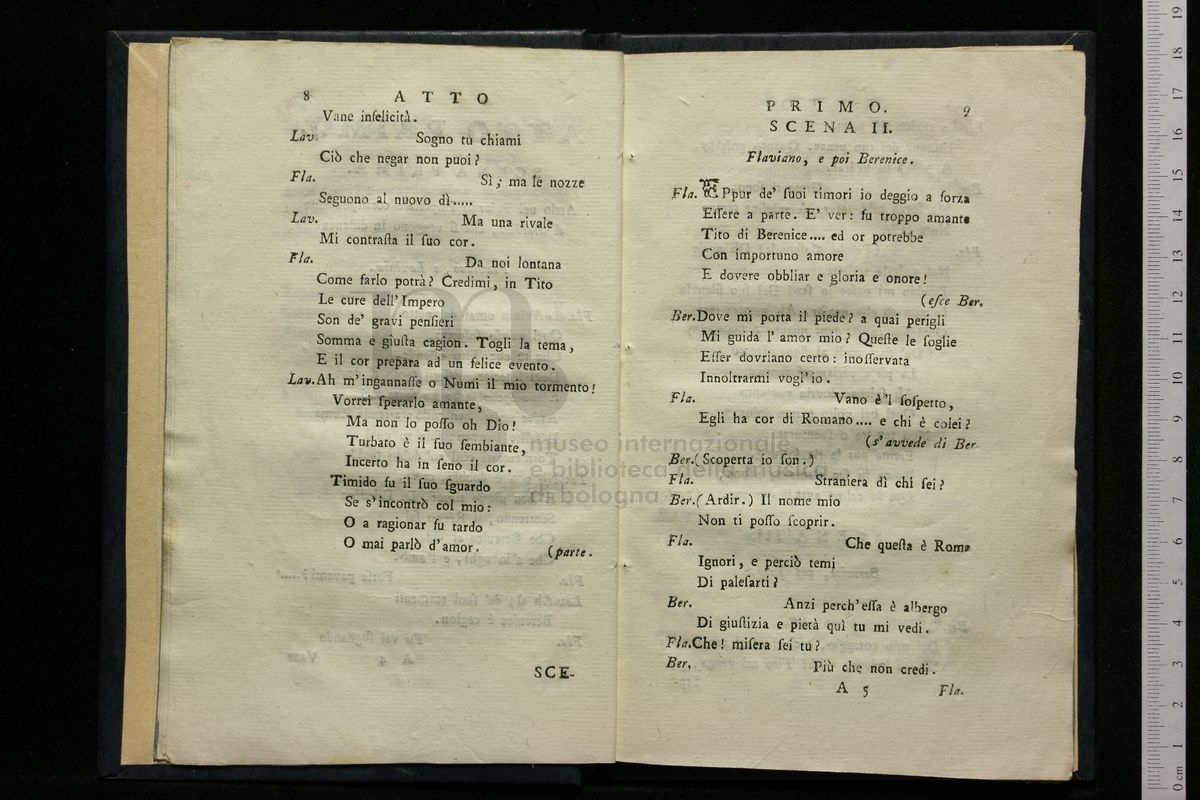 8 ATTO
Vane infelicità.
Lav. Sogno tu chiami
Ciò che negar non puoi?
Fla. Sì; ma le nozze
Seguono al nuovo dì.....
Lav. Ma una rivale
Mi contraſta il ſuo cor.
Fla. Da noi lontana
Come farlo potrà? Credimi, in Tito
Le cure dell' Impero
Son de' gravi penſieri
Somma e giuſta cagion. Togli la tema,
E il cor prepara ad un felice evento.
Lav. Ah m'ingannaſſe o Numi il mio tormento!
Vorrei ſperarlo amante,
Ma non lo poſſo oh Dio!
Turbato è il ſuo ſembiante,
Incerto ha in ſeno il cor.
Timido fu il ſuo ſguardo
Se s'incontrò col mio:
O a ragionar fu tardo
O mai parlò d'amor. (parte.
SCE-
PRIMO. 9
SCENA II.
Flaviano, e poi Berenice.
Fla. EPpur de' ſuoi timori io deggio a forza
Eſſere a parte. E' ver: fu troppo amante
Tito di Berenice.... ed or potrebbe
Con importuno amore
E dovere obbliar e gloria e onore!
(eſce Ber.
Ber. Dove mi porta il piede? a quai perigli
Mi guida l' amor mio? Queſte le ſoglie
Eſſer dovriano certo: inoſſervata
Innoltrarmi vogl'io.
Fla. Vano è'l ſoſpetto,
Egli ha cor di Romano.... e chi è colei?
(s'avvede di Ber.
Ber. (Scoperta io ſon.)
Fla. Straniera dì chi ſei?
Ber. (Ardir.) Il nome mio
Non ti poſſo ſcoprir.
Fla. Che queſta è Roma
Ignori, e perciò temi
Di paleſarti?
Ber. Anzi perch'eſſa è albergo
Di giuſtizia e pietà quì tu mi vedi.
Fla. Che! miſera ſei tu?
Ber. Più che non credi.
A 5 Fla.
museo internazionale
e biblioteca della musica
di bologna
0 cm 1 2 3 4 5 6 7 8 9 10 11 12 13 14 15 16 17 18 19